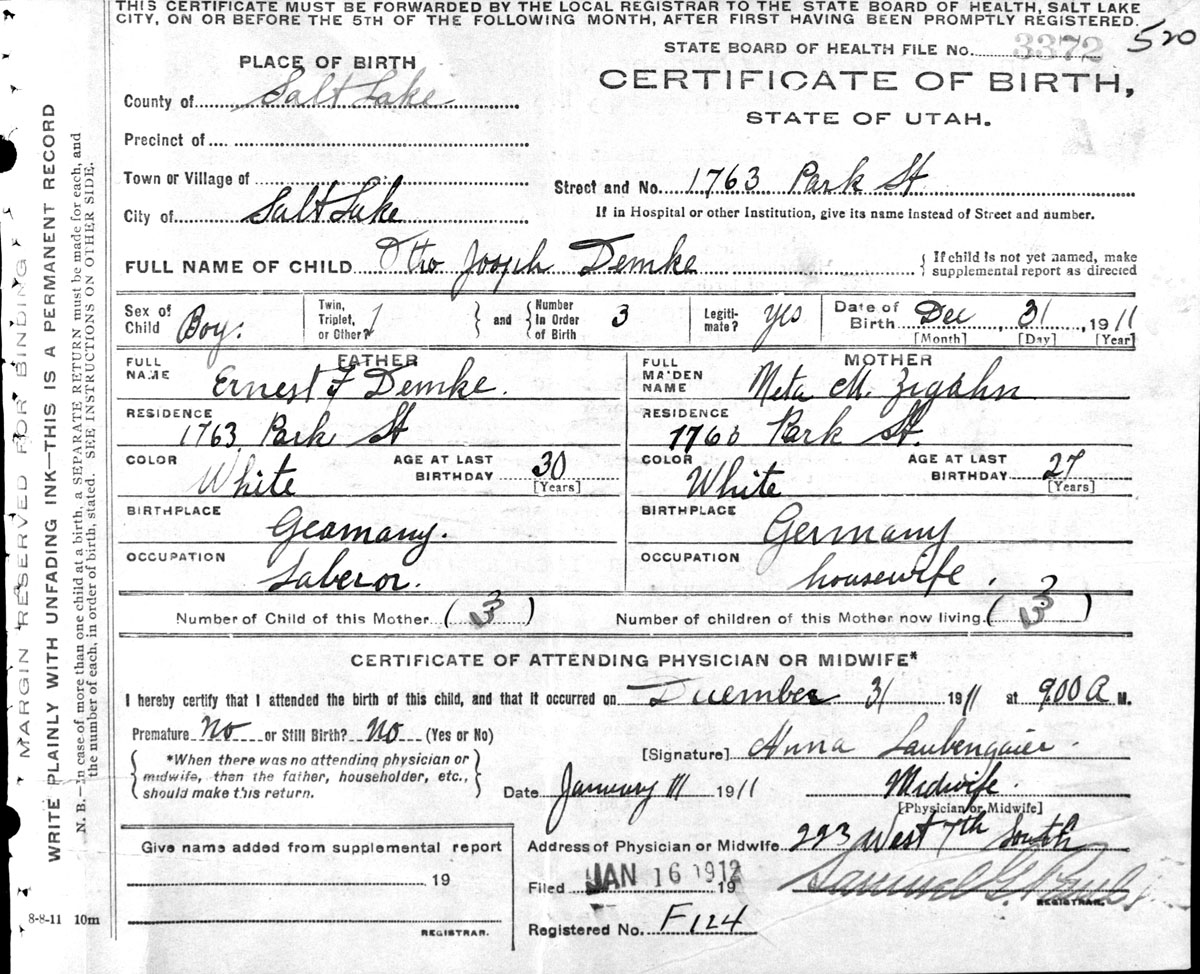 THIS CERTIFICATE MUST BE FORWARDED BY THE LOCAL REGISTRAR TO THE STATE BOARD OF HEALTH, SALT LAKE
CITY, ON OR BEFORE THE 5TH OF THE FOLLOWING MONTH, AFTER FIRST HAVING BEEN PROMPTLY REGISTERED.
520
STATE BOARD OF HEALTH FILE No. 3372
PLACE OF BIRTH
CERTIFICATE OF BIRTH,
STATE OF UTAH.
County of Salt Lake
Precinct of
Town or Village of
City of Salt Lake
Street and No. 1763 Park St.
If in Hospital or other Institution, give its name instead of Street and number.
FULL NAME OF CHILD Otto Joseph Demke
{ If child is not yet named, make
supplemental report as directed
Sex of Child Boy.
Twin, Triplet, or Other? 1
and { Number In Order of Birth 3
Legiti-mate? Yes
Date of Birth Dec, 31, 1911
[Month] [Day] [Year]
FATHER
FULL NAME Ernest F Demke.
RESIDENCE
1763 Park St
COLOR White AGE AT LAST BIRTHDAY 30
[Years]
BIRTHPLACE
Geamany.
OCCUPATION
Laberor.
MOTHER
FULL MAIDEN NAME Meta M. Zigahn
RESIDENCE
1763 Park St.
COLOR White AGE AT LAST BIRTHDAY 27
[Years]
BIRTHPLACE
Germany
OCCUPATION
housewife.
Number of Child of this Mother (3)
Number of children of this Mother now living. (3)
CERTIFICATE OF ATTENDING PHYSICIAN OR MIDWIFE*
I hereby certify that I attended the birth of this child, and that it occurred on December 31 1911 at 9.00 A M.
Premature No or Still Birth? No (Yes or No)
{ *When there was no attending physician or
midwife, then the father, householder, etc.,
should make this return. }
[Signature] Anna Laubengaier.
Date January 1911
Midwife.
[Physician or Midwife]
Address of Physician or Midwife 223 West 7th South
Filed JAN 16 1912 19
Samuel G.
REGISTRAR.
Registered No. F124
Give name added from supplemental report
19
REGISTRAR.
8-8-11 10m
MARGIN RESERVED FOR BINDING
WRITE PLAINLY WITH UNFADING INK—THIS IS A PERMANENT RECORD
N. B.—In case of more than one child at a birth, a SEPARATE RETURN must be made for each, and
the number of each, in order of birth, stated. SEE INSTRUCTIONS ON OTHER SIDE.